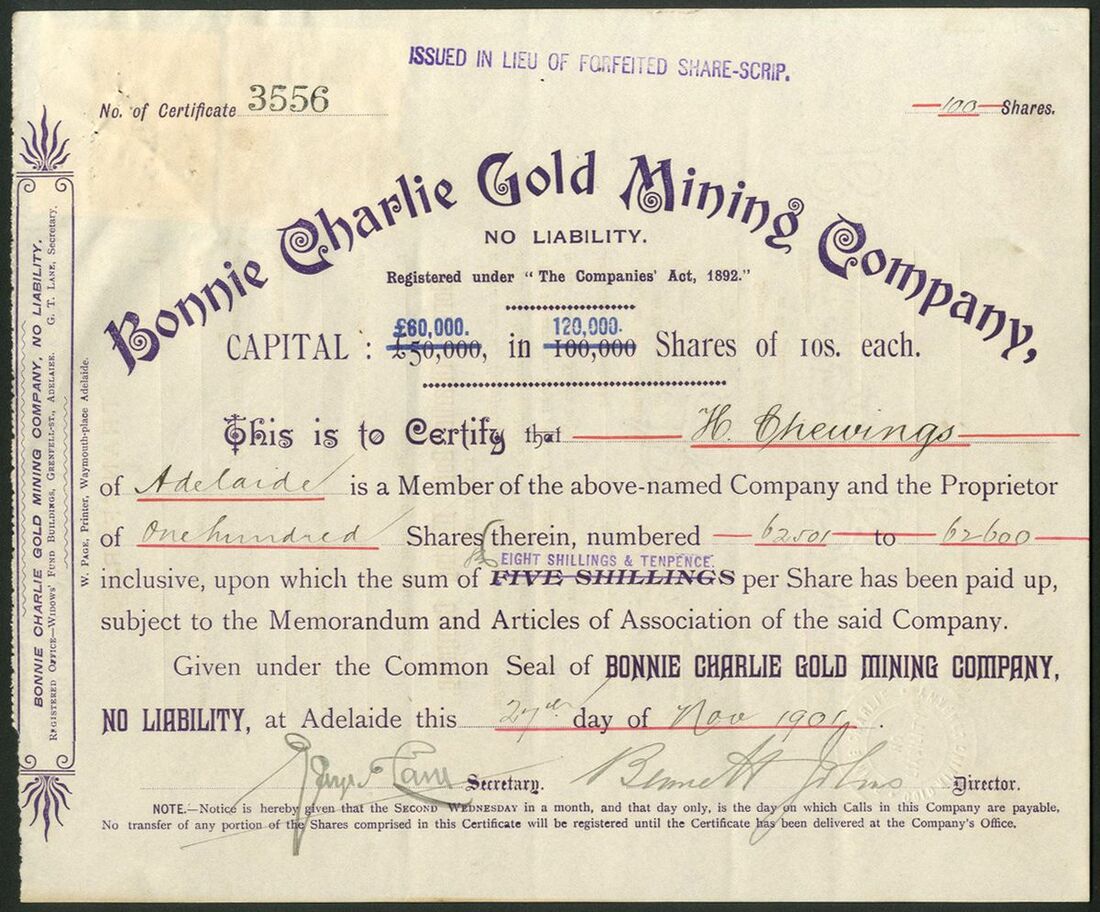 ISSUED IN LIEU OF FORFEITED SHARE-SCRIP.
No. of Certificate 3556
100 Shares.
Bonnie Charlie Gold Mining Company,
NO LIABILITY.
Registered under "The Companies' Act, 1892."
£60,000. 120,000.
CAPITAL : £50,000, in 100,000 Shares of 10s. each.
This is to Certify that H. Chewings
of Adelaide is a Member of the above-named Company and the Proprietor
of One hundred Shares therein, numbered 62501 to 62600
EIGHT SHILLINGS & TENPENCE.
inclusive, upon which the sum of FIVE SHILLINGS per Share has been paid up,
subject to the Memorandum and Articles of Association of the said Company.
Given under the Common Seal of BONNIE CHARLIE GOLD MINING COMPANY,
NO LIABILITY, at Adelaide this 27th day of Nov 1901.
Secretary. Bennett Johns Director.
NOTE.—Notice is hereby given that the SECOND WEDNESDAY in a month, and that day only, is the day on which Calls in this Company are payable,
No transfer of any portion of the Shares comprised in this Certificate will be registered until the Certificate has been delivered at the Company's Office.
BONNIE CHARLIE GOLD MINING COMPANY, NO LIABILITY.
REGISTERED OFFICE—WIDOWS' FUND BUILDINGS, GRENFELL-ST., ADELAIDE. G. T. LANE, Secretary.
W. PAGE, Printer, Waymouth-place Adelaide.